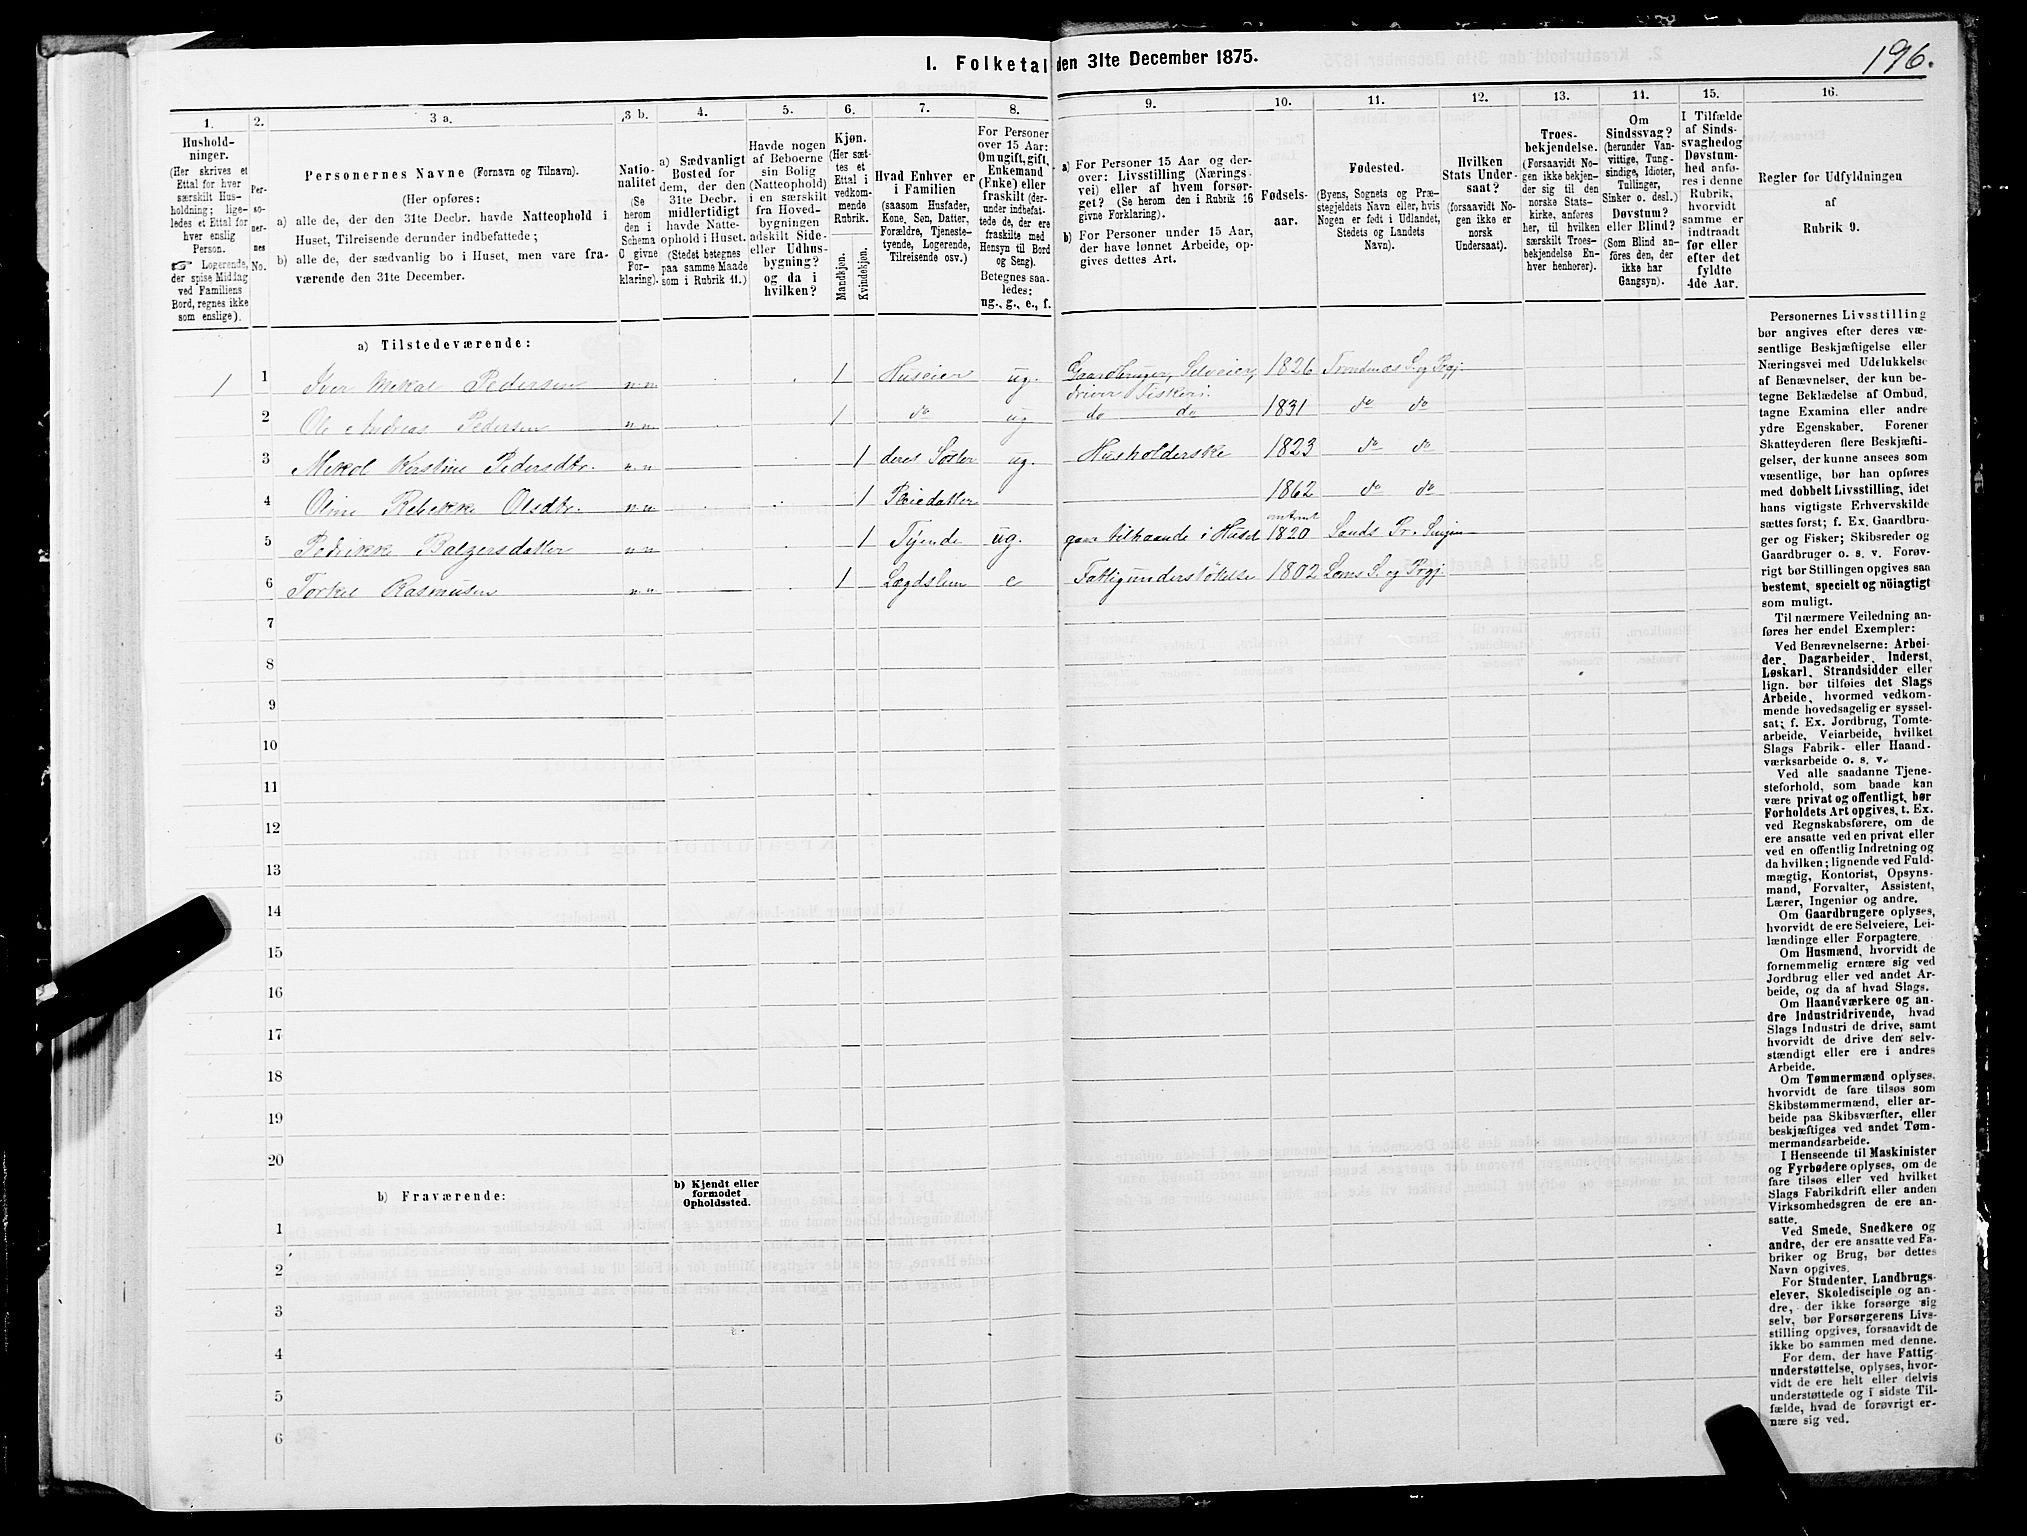 196.
I. Folketal den 31te December 1875.
1.
Hushold-
ninger.
(Her skrives et
Ettal for hver
særskilt Hus-
holdning; lige-
ledes et Ettal for
hver enslig
Person.
☞ Logerende,
der spise Middag
ved Familiens
Bord, regnes ikke
som enslige).
2.
Per-
so-
ner-
nes
No.
3 a.
Personernes Navne (Fornavn og Tilnavn).
(Her opføres:
a) alle de, der den 31te Decbr. havde Natteophold i
Huset, Tilreisende derunder indbefattede;
b) alle de, der sædvanlig bo i Huset, men vare fra-
værende den 31te December.
3 b.
Natio-
nalitet
(Se
herom
den i
Schema
C givne
For-
klaring).
4.
a) Sædvanligt
Bosted for
dem, der den
31te Decbr.
midlertidigt
havde Natte-
ophold i Huset.
(Stedet betegnes
paa samme Maade
som i Rubrik 11.)
5.
Havde nogen
af Beboerne
sin Bolig
(Natteophold)
i en særskilt
fra Hoved-
bygningen
adskilt Side-
eller Udhus-
bygning?
og da i
hvilken?
6.
Kjøn.
(Her sæt-
tes et
Ettal i
vedkom-
mende
Rubrik.
Mandkjøn.
Kvindekjøn.
7.
Hvad Enhver er
i Familien
(saasom Husfader,
Kone, Søn, Datter,
Forældre, Tjeneste-
tyende, Logerende,
Tilreisende osv.)
8.
For Personer
over 15 Aar:
Om ugift, gift,
Enkemand
(Enke) eller
fraskilt (der-
under indbefat-
tede de, der ere
fraskilte med
Hensyn til Bord
og Seng).
Betegnes saa-
ledes:
ug., g., e., f.
9.
a) For Personer 15 Aar og der-
over: Livsstilling (Nærings-
vei) eller af hvem forsør-
get? (Se herom den i Rubrik 16
givne Forklaring).
b) For Personer under 15 Aar,
der have lønnet Arbeide, op-
gives dettes Art.
10.
Fødsels-
aar.
11.
Fødested.
(Byens, Sognets og Præ-
stegjeldets Navn eller, hvis
Nogen er født i Udlandet,
Stedets og Landets
Navn).
12.
Hvilken
Stats Under-
saat?
(forsaavidt No-
gen ikke er
norsk
Undersaat).
13.
Troes-
bekjendelse.
(Forsaavidt No-
gen ikke bekjen-
der sig til den
norske Stats-
kirke, anføres
her, til hvilken
særskilt Troes-
bekjendelse En-
hver henhører).
14.
Om
Sindssvag?
(herunder Van-
vittige, Tung-
sindige, Idioter,
Tullinger,
Sinker o. desl.)
Døvstum?
eller Blind?
(Som Blind an-
føres den, der
ikke har
Gangsyn).
15.
I Tilfælde
af Sinds-
svaghed og
Døvstum-
hed anfø-
res i denne
Rubrik,
hvorvidt
samme er
indtraadt
før eller
efter det
fyldte
4de Aar.
16.
Regler for Udfyldningen
af
Rubrik 9.
a) Tilstedeværende:
1 1 Iver Mikal Pedersen n.n. 1 Huseier ug. Gaardbruger, Selveier, driver Fiskeri. 1826 Trondenæs S. og Prgj.
2 Ole Andreas Pedersen n.n. 1 do ug do do 1831 do do
3 Mikol Kerstine Pedersdtr. n.n 1 deres Søster ug. Husholderske 1823 do do
4 Oline Rebekke Olsdtr. n.n 1 Pleiedatter 1862 do do
5 Pedrikke Balzersdatter n.n 1 Tjende ug. gaar tilhaande i Huset omtrent 1820 Sands Pr. Sinjen
6 Torkel Rasmusen n.n 1 Lægdslem e Fattigunderstøttelse 1802 Loms S. og Prgj
7
8
9
10
11
12
13
14
15
16
17
18
19
20
b) Fraværende:
b) Kjendt eller
formodet
Opholdssted.
1
2
3
4
5
6
Personernes Livsstilling
bør angives efter deres væ-
sentlige Beskjæftigelse eller
Næringsvei med Udelukkelse
af Benævnelser, der kun be-
tegne Beklædelse af Ombud,
tagne Examina eller andre
ydre Egenskaber. Forener
Skatteyderen flere Beskjæfti-
gelser, der kunne ansees som
væsentlige, bør han opføres
med dobbelt Livsstilling, idet
hans vigtigste Erhvervskilde
sættes først; f. Ex. Gaardbru-
ger og Fisker; Skibsreder og
Gaardbruger o. s. v. Forøv-
rigt bør Stillingen opgives saa
bestemt, specielt og nöiagtigt
som muligt.
Til nærmere Veiledning an-
føres her endel Exempler:
Ved Benævnelserne: Arbei-
der, Dagarbeider, Inderst,
Løskarl, Strandsidder eller
lign. bør tilføies det Slags
Arbeide, hvormed vedkom-
mende hovedsagelig er syssel-
sat; f. Ex. Jordbrug, Tomte-
arbeide, Veiarbeide, hvilket
Slags Fabrik- eller Haand-
værksarbeide o. s. v.
Ved alle saadanne Tjene-
steforhold, som baade kan
være privat og offentligt, bør
Forholdets Art opgives, t. Ex.
ved Regnskabsførere, om de
ere ansatte ved en privat eller
ved en offentlig Indretning og
da hvilken; lignende ved Fuld-
mægtig, Kontorist, Opsyns-
mand, Forvalter, Assistent,
Lærer, Ingeniør og andre.
Om Gaardbrugere oplyses,
hvorvidt de ere Selveiere, Lei-
lændinge eller Forpagtere.
Om Husmænd, hvorvidt de
fornemmelig ernære sig ved
Jordbrug eller ved andet Ar-
beide, og da af hvad Slags.
Om Haandværkere og an-
dre Industridrivende, hvad
Slags Industri de drive, samt
hvorvidt de drive den selv-
stændigt eller ere i andres
Arbeide.
Om Tømmermænd oplyses,
hvorvidt de fare tilsøs som
Skibstømmermænd, eller ar-
beide paa Skibsværfter, eller
beskjæftiges ved andet Tøm-
mermandsarbeide.
I Henseende til Maskinister
og Fyrbødere oplyses, om de
fare tilsøs eller ved hvilket
Slags Fabrikdrift eller anden
Virksomhedsgren de ere an-
satte.
Ved Smede, Snedkere og
andre, der ere ansatte ved Fa-
briker og Brug, bør dettes
Navn opgives.
For Studenter, Landbrugs-
elever, Skoledisciple og an-
dre, der ikke forsørge sig
selv, bør Forsørgerens Livs-
stilling opgives, forsaavidt de
ikke bo sammen med denne.
For dem, der have Fattig-
understøttelse, oplyses, hvor-
vidt de ere helt eller delvis
understøttede og i sidste Til-
fælde, hvad de forøvrigt er-
nære sig ved.